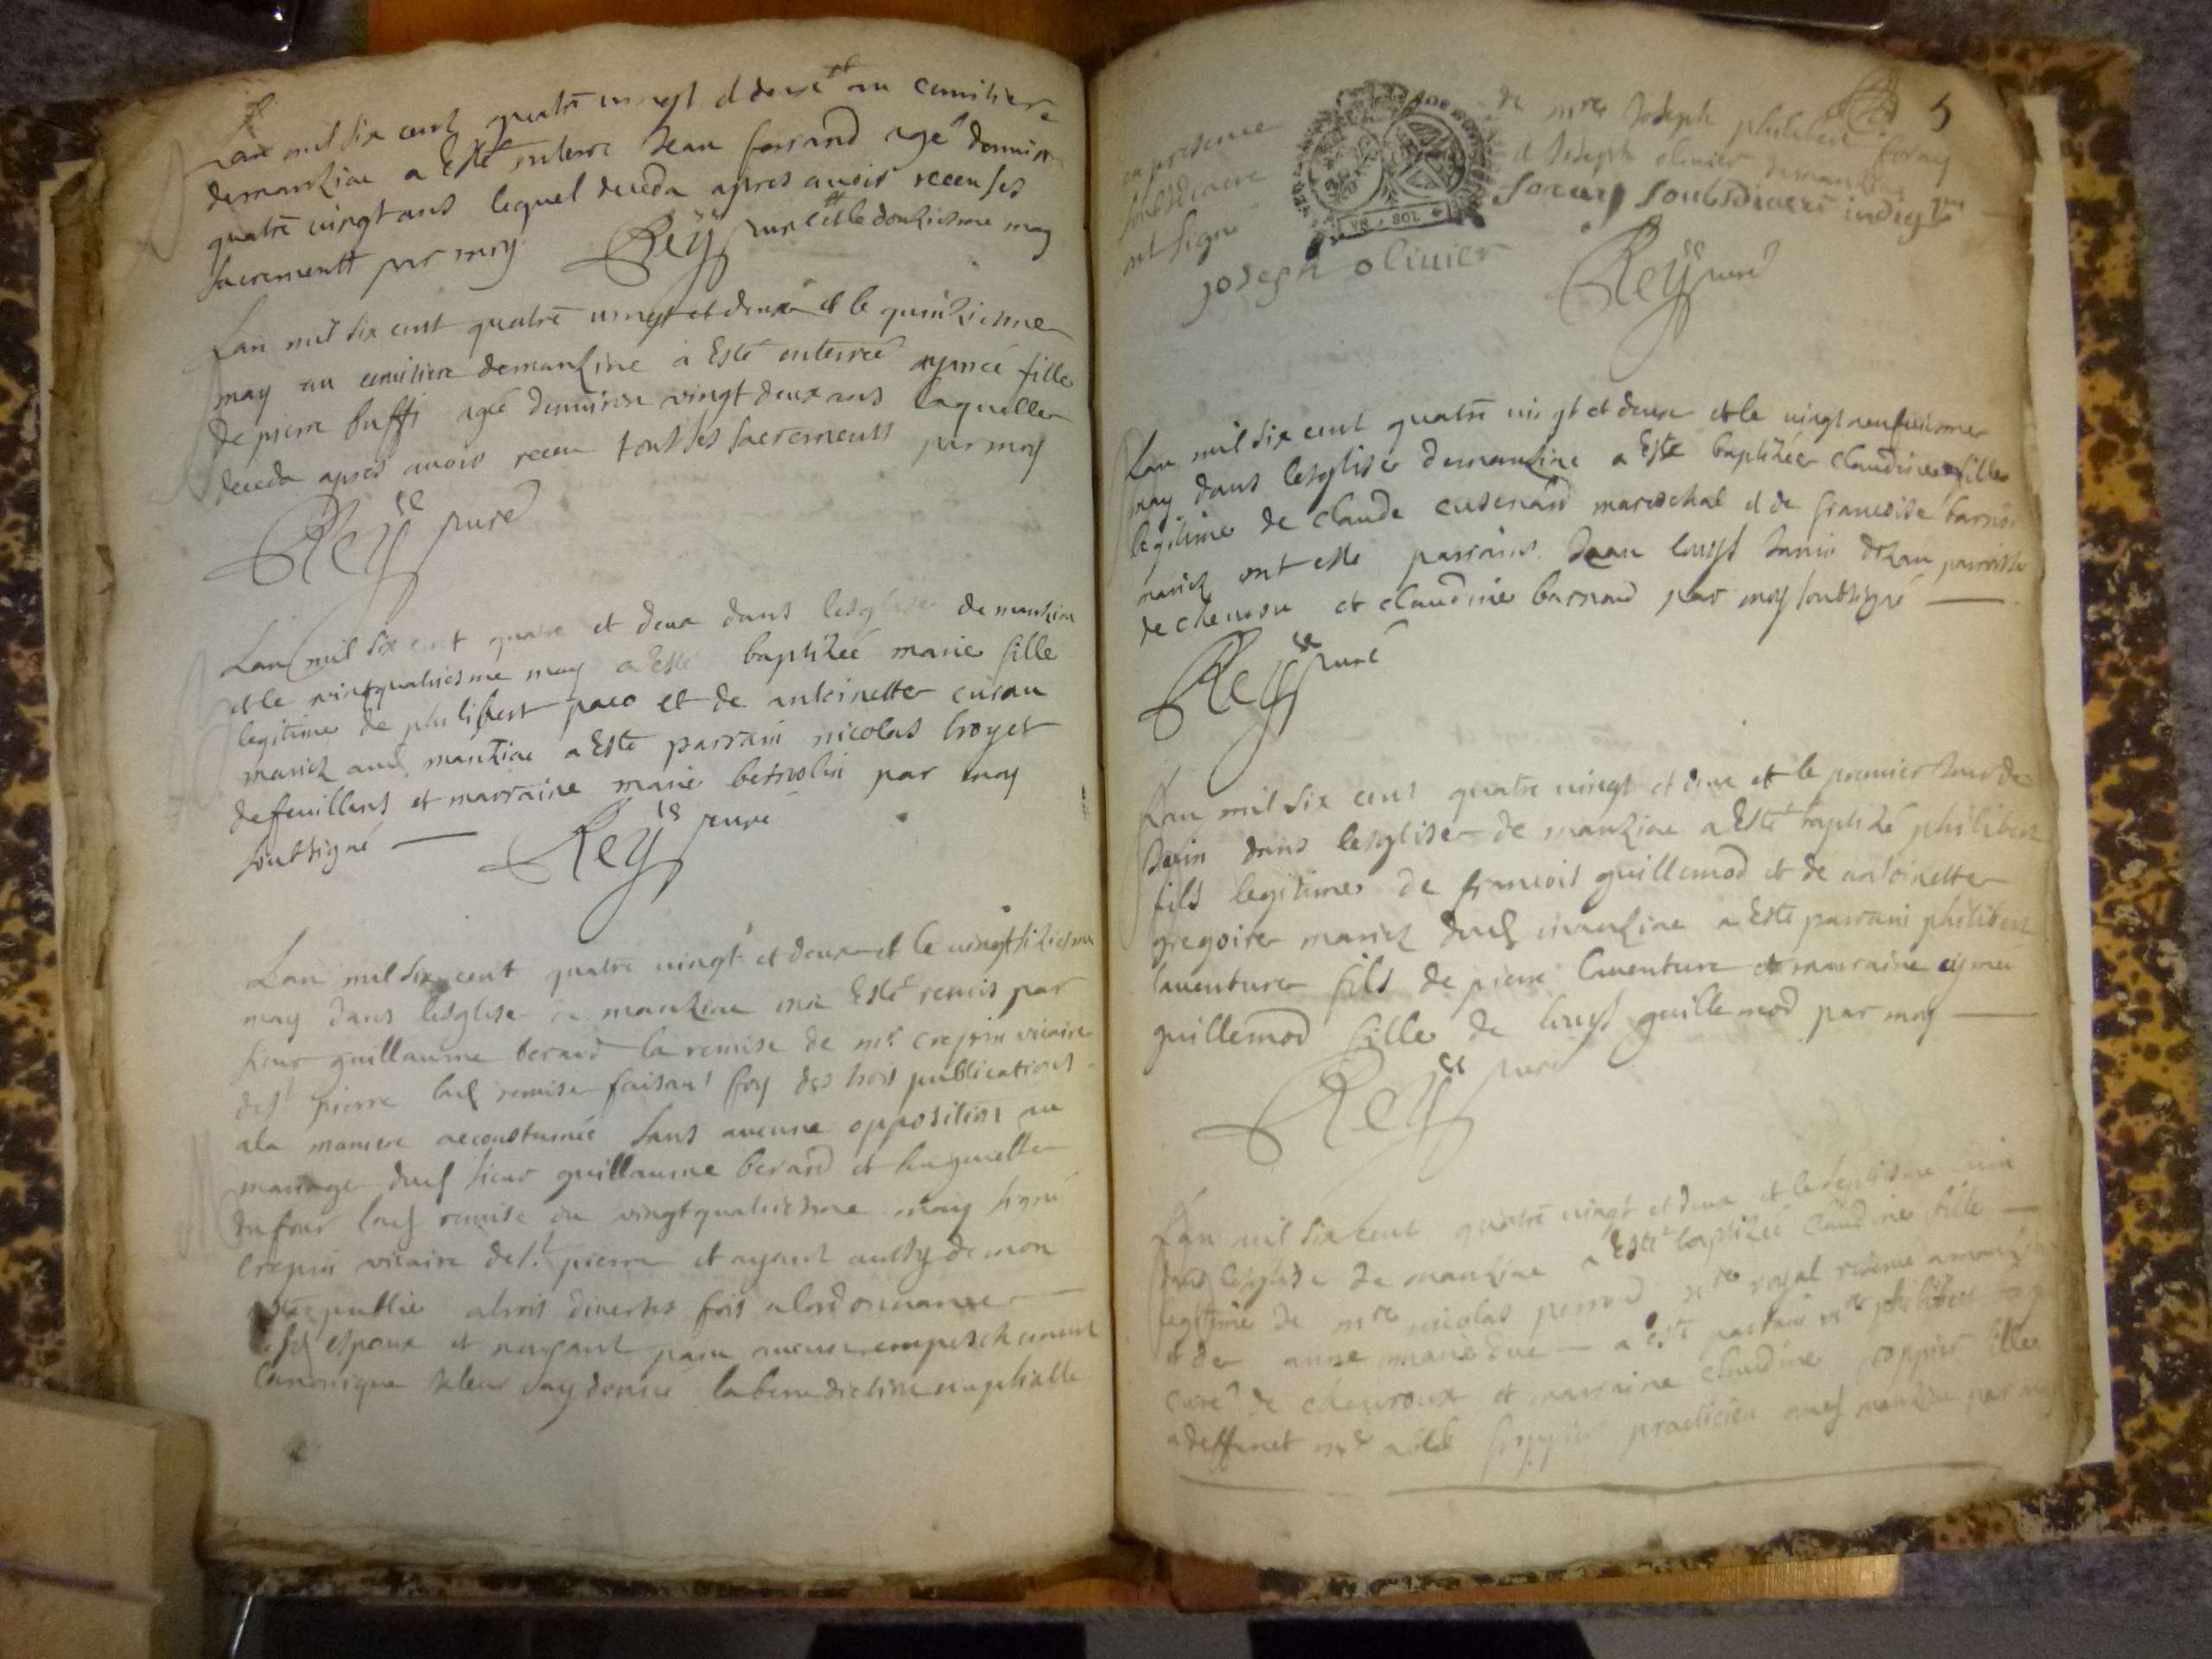 Lan mil six cent quatre vingt et deux et au cemitiere
demanziae a Esté enterré Jean ferrand agé denviron
quatre vingt ans lequel deceda apres avoir receu ses
sacrementt par moy Rey curé et le douziesme may
Lan mil six cent quatre vingt et deux et le quinziesme
may au cemitiere demanziae a Esté enterreé aymeé fille
de pierre buffi ageé denviron vingt deux ans laquelle
deceda apres avoir receu tous ses sacrementt par moy
Rey curé
Lan mil six cent quatre et deux dans lesglise de manziae
et le vingtquatriesme may a Esté baptizeé marie fille
legitime de philibert paco et de antoinette curau
mariez aud manziae a Esté parrain nicolas broyer
defeuillens et marraine marie bernolin par moy
soubsigné Rey curé
Lan mil six cent quatre vingt et deux et le vingtsiziesme
may dans lesglise de manziae ma Esté remis par
sieur guillaume berard la remise de mr crespin vicaire
de st pierre lad remise faisant foy des trois publications
ala maniere accoustumeé sans aucune opposition au
mariage dud sieur guillaume berard et huguette
dufour lad remise du vingtquatriesme may signé
crepin vicaire de st. pierre et ayant aussy de mon
publié atrois diverses fois
espoux et nayant paru aucun empeschement
Canonique Je leur ay donné la benediction nuptialle
en presence de mre Joseph philibert foray
soubsdiacre et Joseph olivier demanziae
ont signé foray soubsdiacre indigne
5
joseph olivier Rey curé
Lan mil six cent quatre vingt et deux et le vingtneufviesme
may dans lesglise demanziae a Esté baptizeé claudine fille
legitime de claude cusenard mareschal et de francoise
mariez ont esté parrains Jean louys Janin paroisse
de chevrou et claudine barnaud par moy soubsigné
Rey curé
Lan mil six cent quatre vingt et deux et le premier Jour de
Juin dans lesglise de manziae a Esté baptizé philibert
fils legitime de francois guillemod et de antoinette
gregoire mariez dud manziae a Esté parrain philibert
laventure fils de pierre laventure et marraine aymeé
guillemod fille de louys guillemod par moy
Rey curé
Lan mil six cent quatre vingt et deux et le septiesme Juin
dans lesglise de manziae a Esté baptizeé Claudine fille
legitime de mre nicolas perrard nre royal
et de anne marie duc a esté parrain mre philibert
curé de chevroux et marraine claudine fille
a deffunct practicien aud manziae par moy